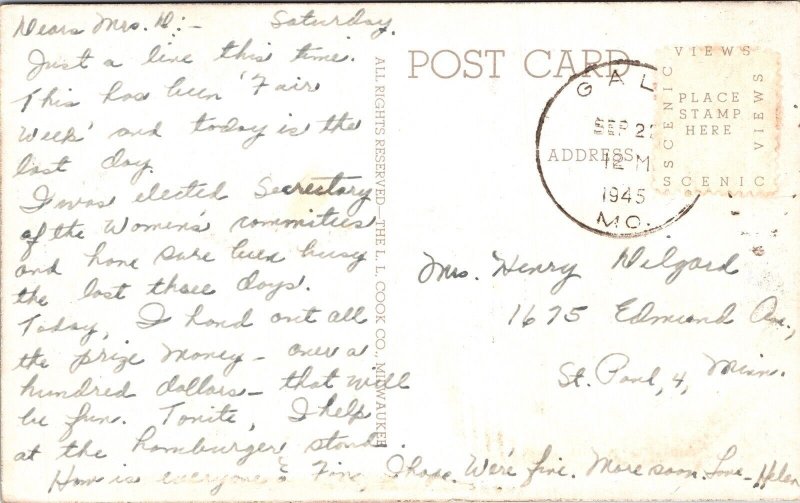 Dear Mrs. D:- Saturday.
Just a line this time.
This has been 'Fair
Week' and today is the
last day.
I was elected Secretary
of the Women's committees
and have sure been busy
the last three days.
Today, I hand out all
the prize money - over a
hundred dollars - that will
be fun. Tonite, I help
at the hamburger stand.
How is everyone? Fine, I hope. We're fine. More soon. Love - Helen
ALL RIGHTS RESERVED - THE L. L. COOK CO., MILWAUKEE
POST CARD
ADDRESS
GAL
SEP 22
12 M
1945
MO.
SCENIC VIEWS
PLACE
STAMP
HERE
SCENIC VIEWS
Mrs. Henry Dilgard
1675 Edmund Av.,
St. Paul, 4, Minn.